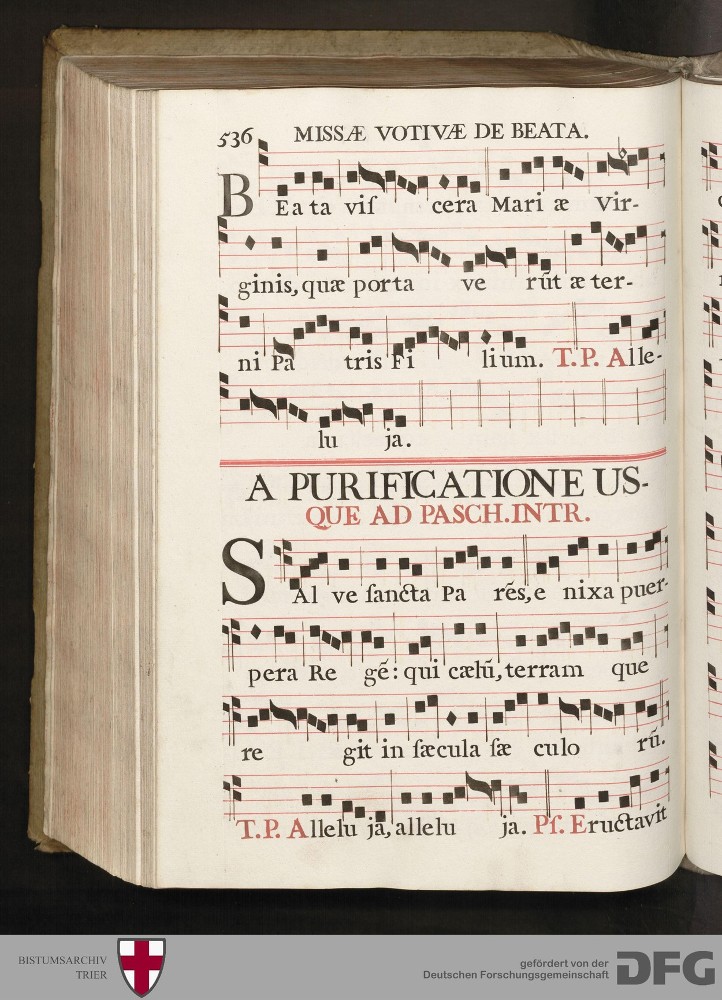 536 MISSÆ VOTIVÆ DE BEATA.
BEata viſ cera Mari æ Vir-
ginis, quæ porta ve rūt æter-
ni Pa tris Fi lium. T.P. Alle-
lu ja.
A PURIFICATIONE US-
QUE AD PASCH. INTR.
SAl ve ſancta Pa rēs, e nixa puer-
pera Re gē: qui cælū, terram que
re git in ſæcula ſæ culo rū.
T.P. Allelu ja, allelu ja. Pſ. Eructavit
BISTUMSARCHIV
TRIER
gefördert von der
Deutschen Forschungsgemeinschaft
DFG